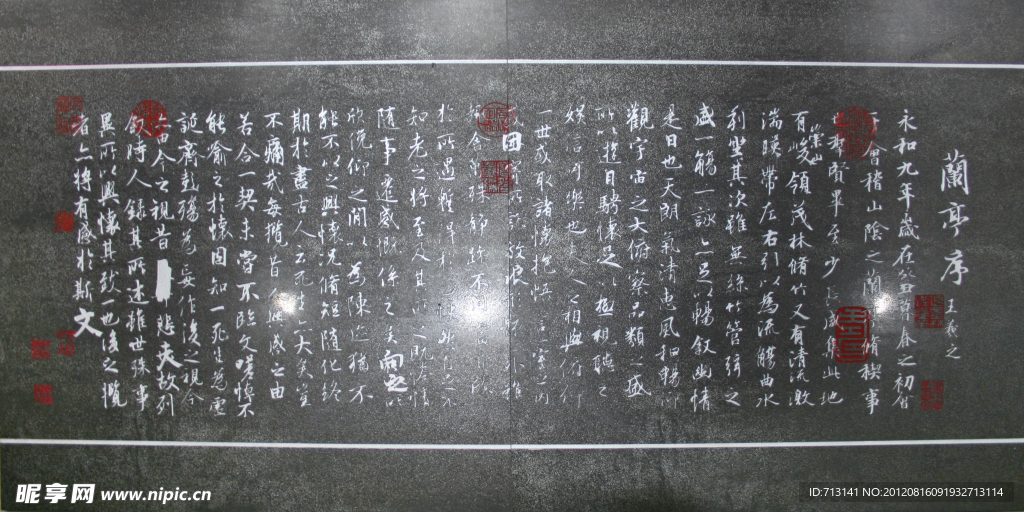 蘭亭序 王羲之
永和九年歲在癸丑暮春之初會
會稽山陰之蘭 脩稧事
羣賢畢至少長 集此地
有峻領茂林脩竹又有清流激
崇山
湍暎帶左右引以為流觴曲水
列坐其次雖無絲竹管弦之
盛一觴一詠亦足以暢叙幽情
是日也天朗氣清惠風和暢仰
觀宇宙之大俯察品類之盛
所以遊目騁懷足以極視聽之
娛信可樂也夫人之相與俯仰
一世或取諸懷抱悟言一室之內
因 放浪
趣舍萬殊靜躁不同
於所遇蹔得於己
知老之將至及其所之既惓情
隨事遷感慨係之矣向之所
欣俛仰之間以為陳迹猶不
能不以之興懷況脩短隨化終
期於盡古人云死生亦大矣豈
不痛哉每攬昔人興感之由
若合一契未嘗不臨文嗟悼不
能喻之於懷固知一死生為虛
誕齊彭殤為妄作後之視今
亦由今之視昔 悲夫故列
敘時人錄其所述雖世殊事
異所以興懷其致一也後之攬
者亦將有感於斯文
昵享网 www.nipic.cn
ID:713141 NO:20120816091932713114